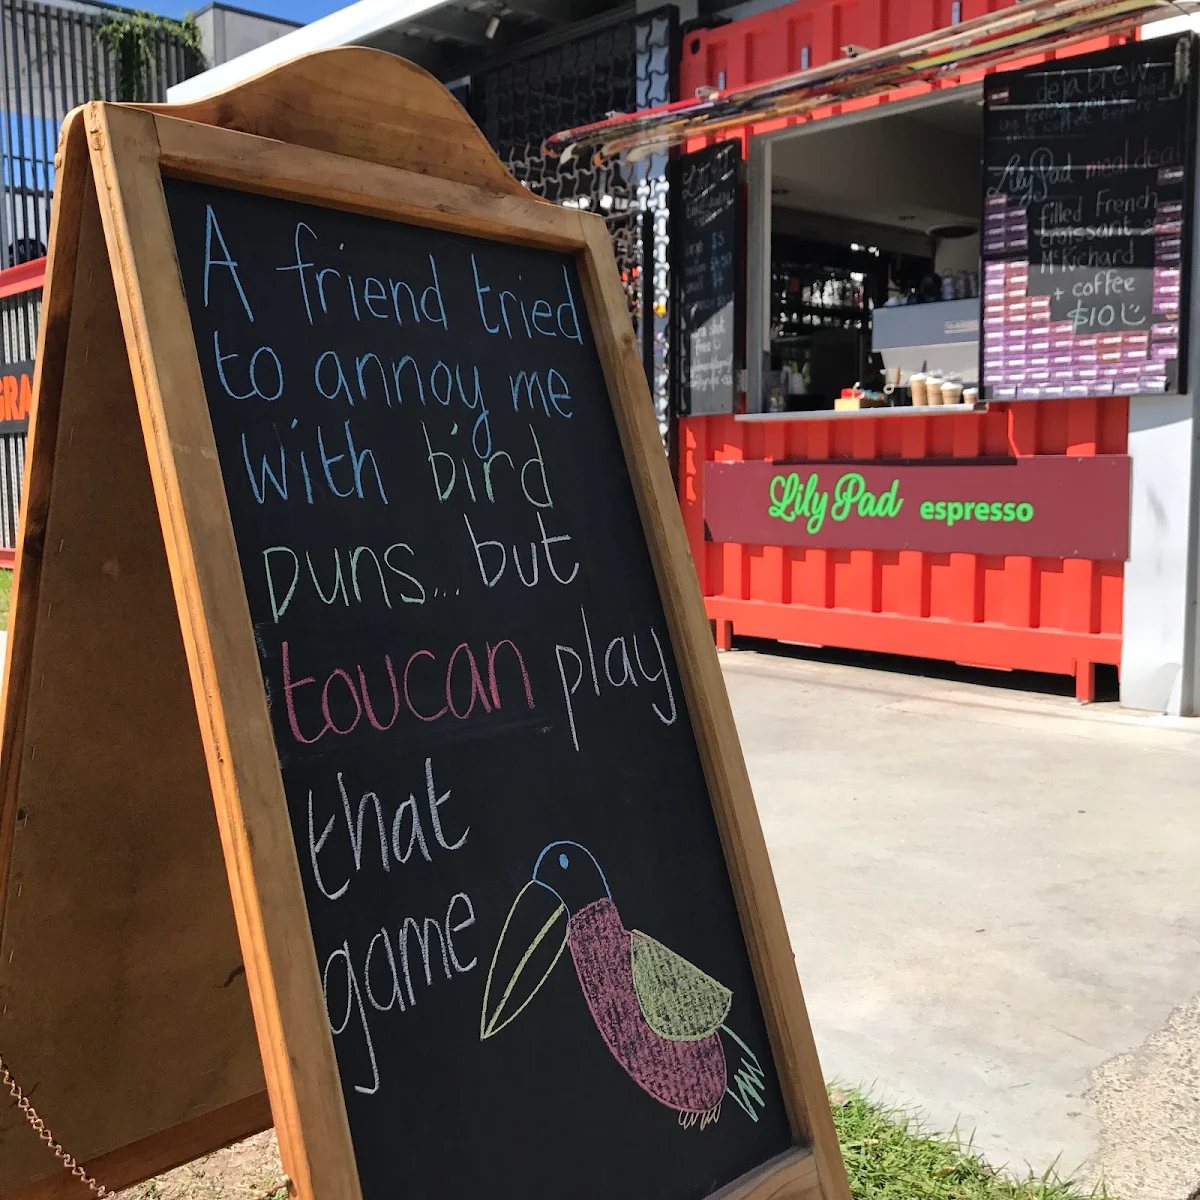 A friend tried
to annoy me
with bird
puns... but
toucan play
that
game
deja brew
Lily Pad meal deal
filled French
croissant
+ coffee
$10
Lily Pad espresso
GRA